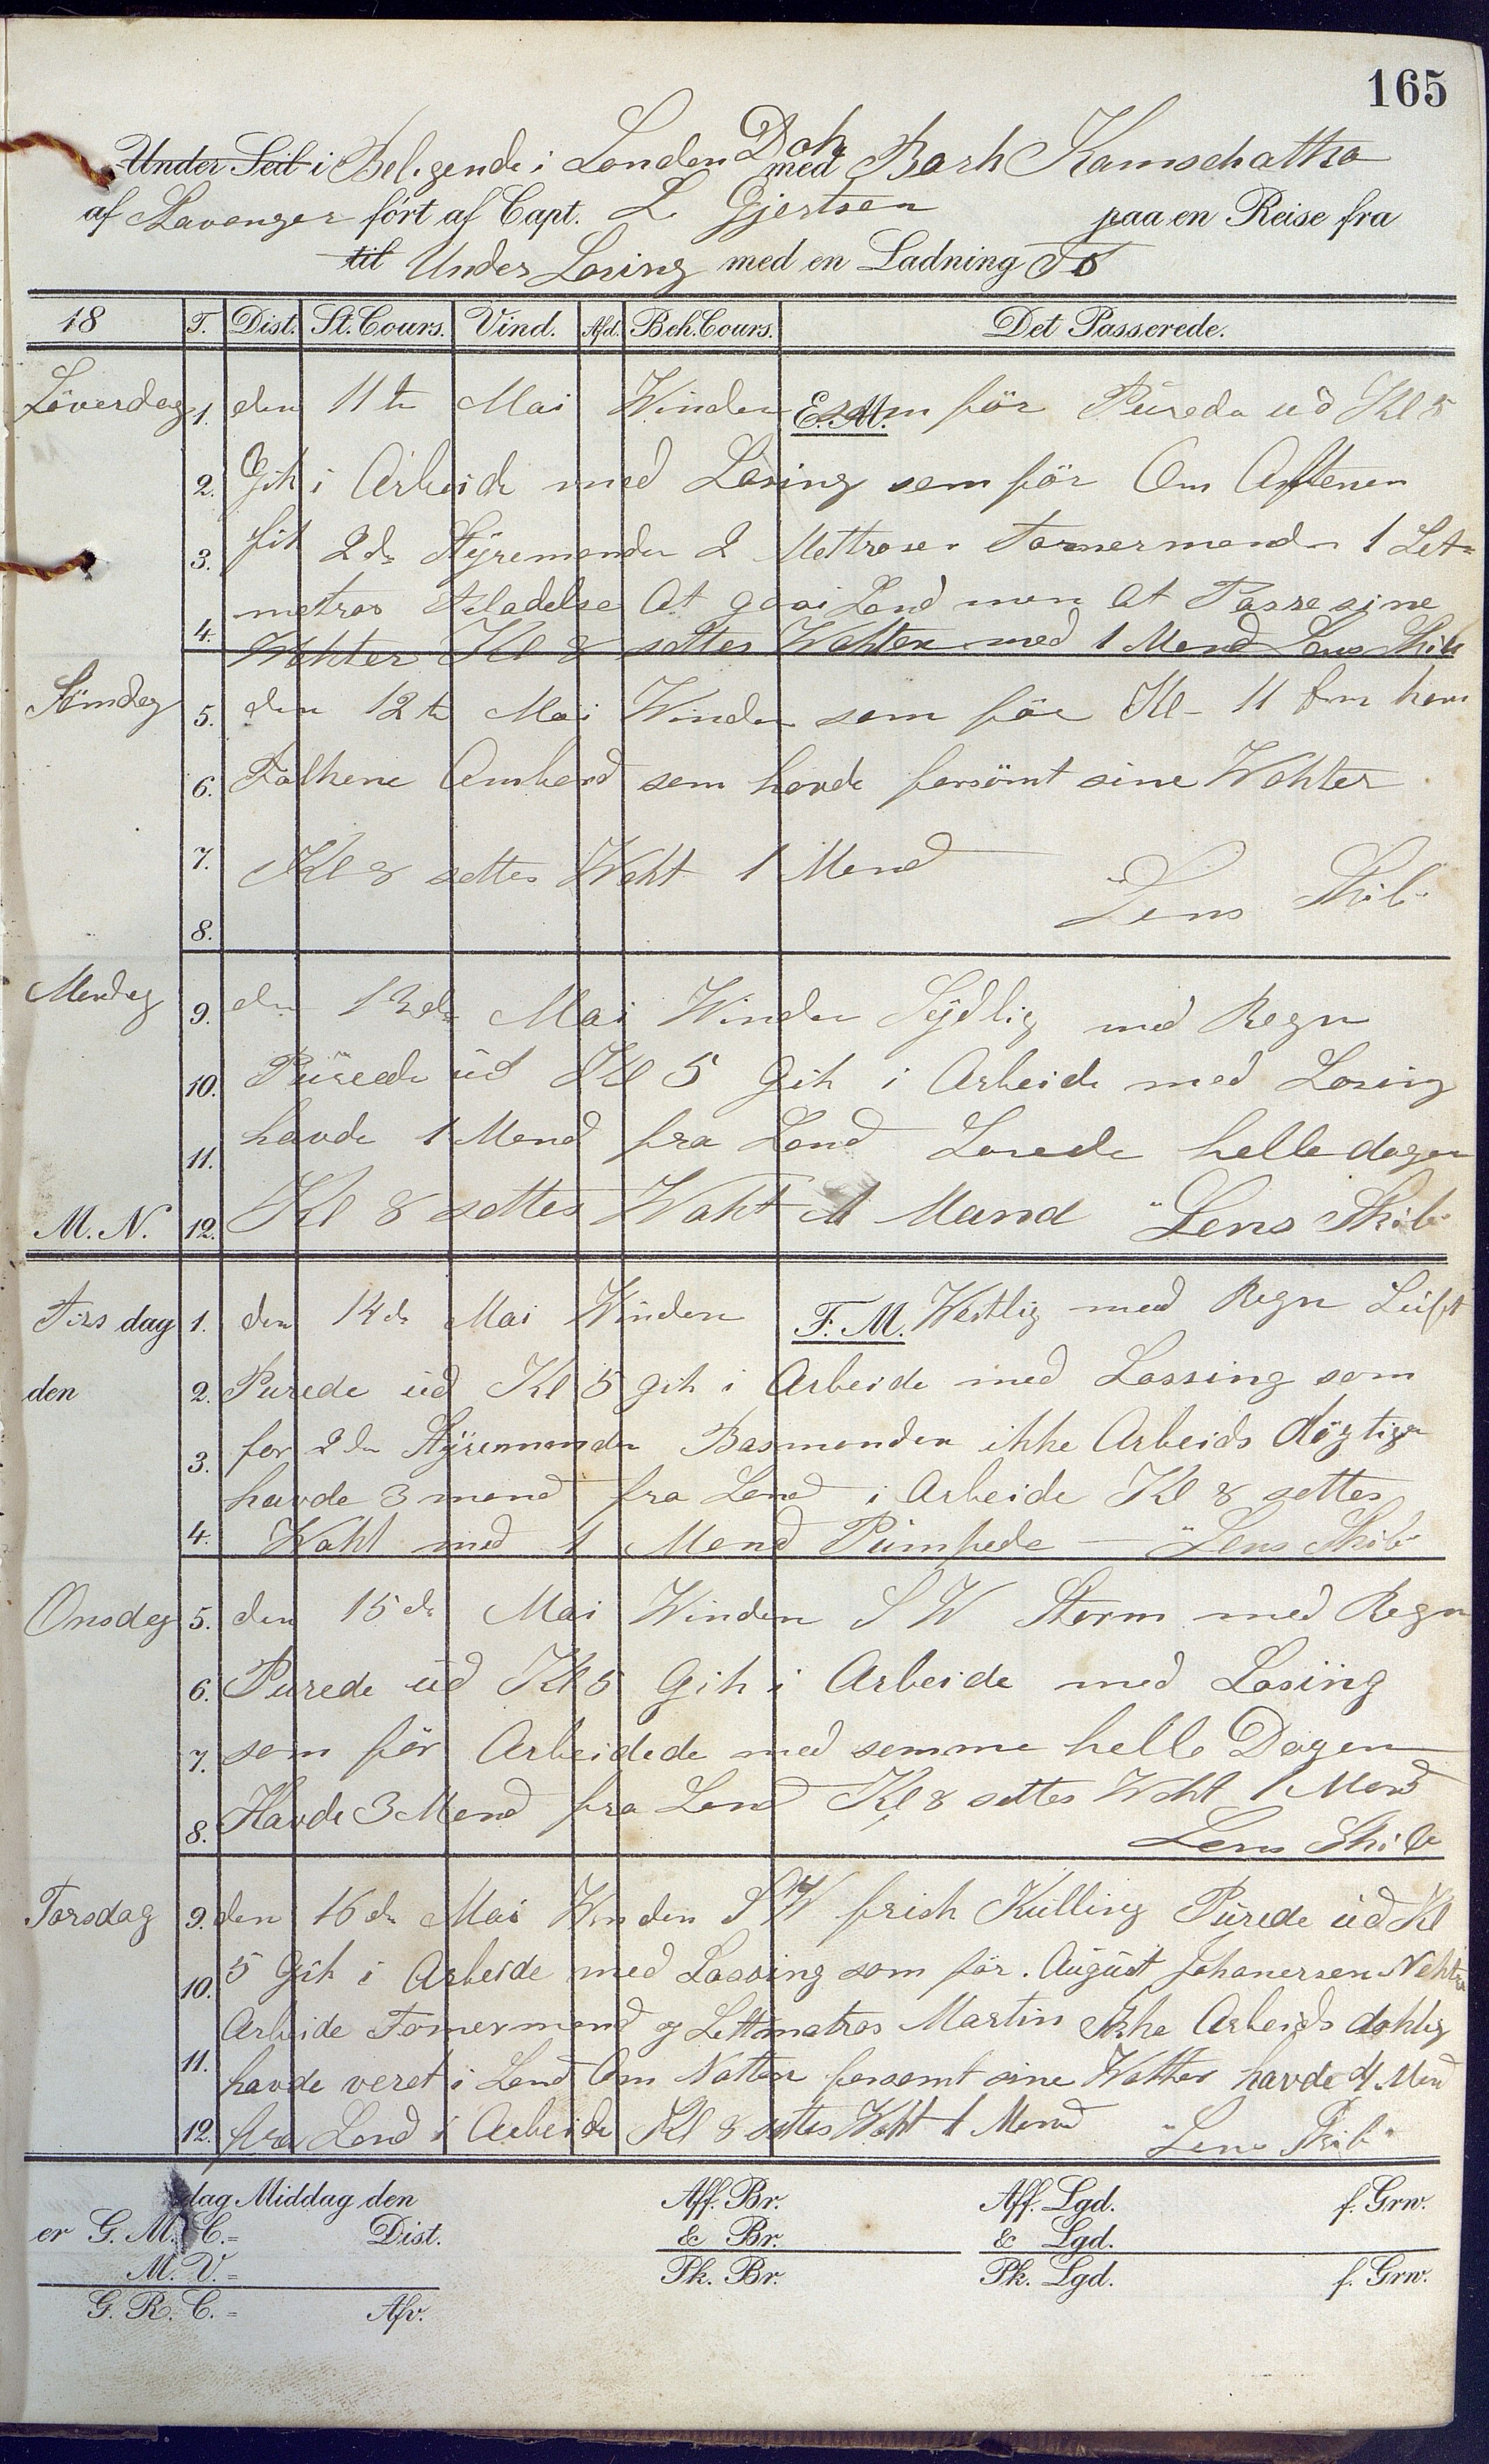 165
Under Seil i Beligende i London Dok med Bark Kamschatka
af Stavanger ført af Capt. L. Gjertsen paa en Reise fra
til Under Losing med en Ladning
18 T. Dist. St. Cours. Vind. Afd. Beh. Cours. Det Passerede.
Löverdag 1. den 11te Mai Winden E. M. som för Pürede ud Kl 5
2. Gik i Arbeide med Losing som för Om Aftenen
3. fik 2de Styremanden 2 Mattroser Tomermanden 1 Let-
matros Tiladelse At gaa i Land men At Passe sine
4. Wahter Kl 8 settes Wahten med 1 Mand Lens Skib
Söndag 5. den 12te Mai Winden som för Kl 11 fm kom
6. Folkene Ombord som havde forsömt sine Wahter
7. Kl 8 settes Waht 1 Mand Lens Skib
8.
Mandag 9. den 13de Mai Winden Sÿdlig med Regn
10. Pürede üd Kl 5 Gik i Arbeide med Losing
11. havde 1 Mand fra Land Losede helle dagen
M. N. 12. Kl 8 settes Waht 1 Mand Lens Skib
Tirs dag 1. den 14de Mai Winden F. M. Westlig med Regn Lüft
den 2. Purede üd Kl 5 gik i Arbeide med Lossing som
3. for 2den Stÿremanden Basmanden ikke Arbeids dögtige
havde 3 mand fra Land i Arbeide Kl 8 settes
4. Waht med 1 Mand Pümpede Lens Skib
Onsdag 5. den 15de Mai Winden S W Storm med Regn
6. Purede üd Kl 5 Gik i Arbeide med Losing
7. som för Arbeidede med samme helle Dagen
8. Havde 3 Mand fra Land Kl 8 settes Waht 1 Mand
Lens Skib
Torsdag 9. den 16de Mai Winden S W frisk Külling Pürede üd Kl
10. 5 Gik i Arbeide med Lossing som för. Augüst Johanersen Nekter
Arbeide Tomermand og Lettmatros Martin Ikke Arbeids dohlig
11. havde veret i Land Om Natten forsomt sine Wahter havde 4 Mand
12. fra Land i Arbeide Kl 8 settes Waht 1 Mand Lens Skib
dag Middag den Aff. Br. Aff. Lgd. f. Grw.
er G. M. C.= Dist. & Br. & Lgd.
M. V.= Pk. Br. Pk. Lgd. f. Grw.
G. R. C.= Afv.